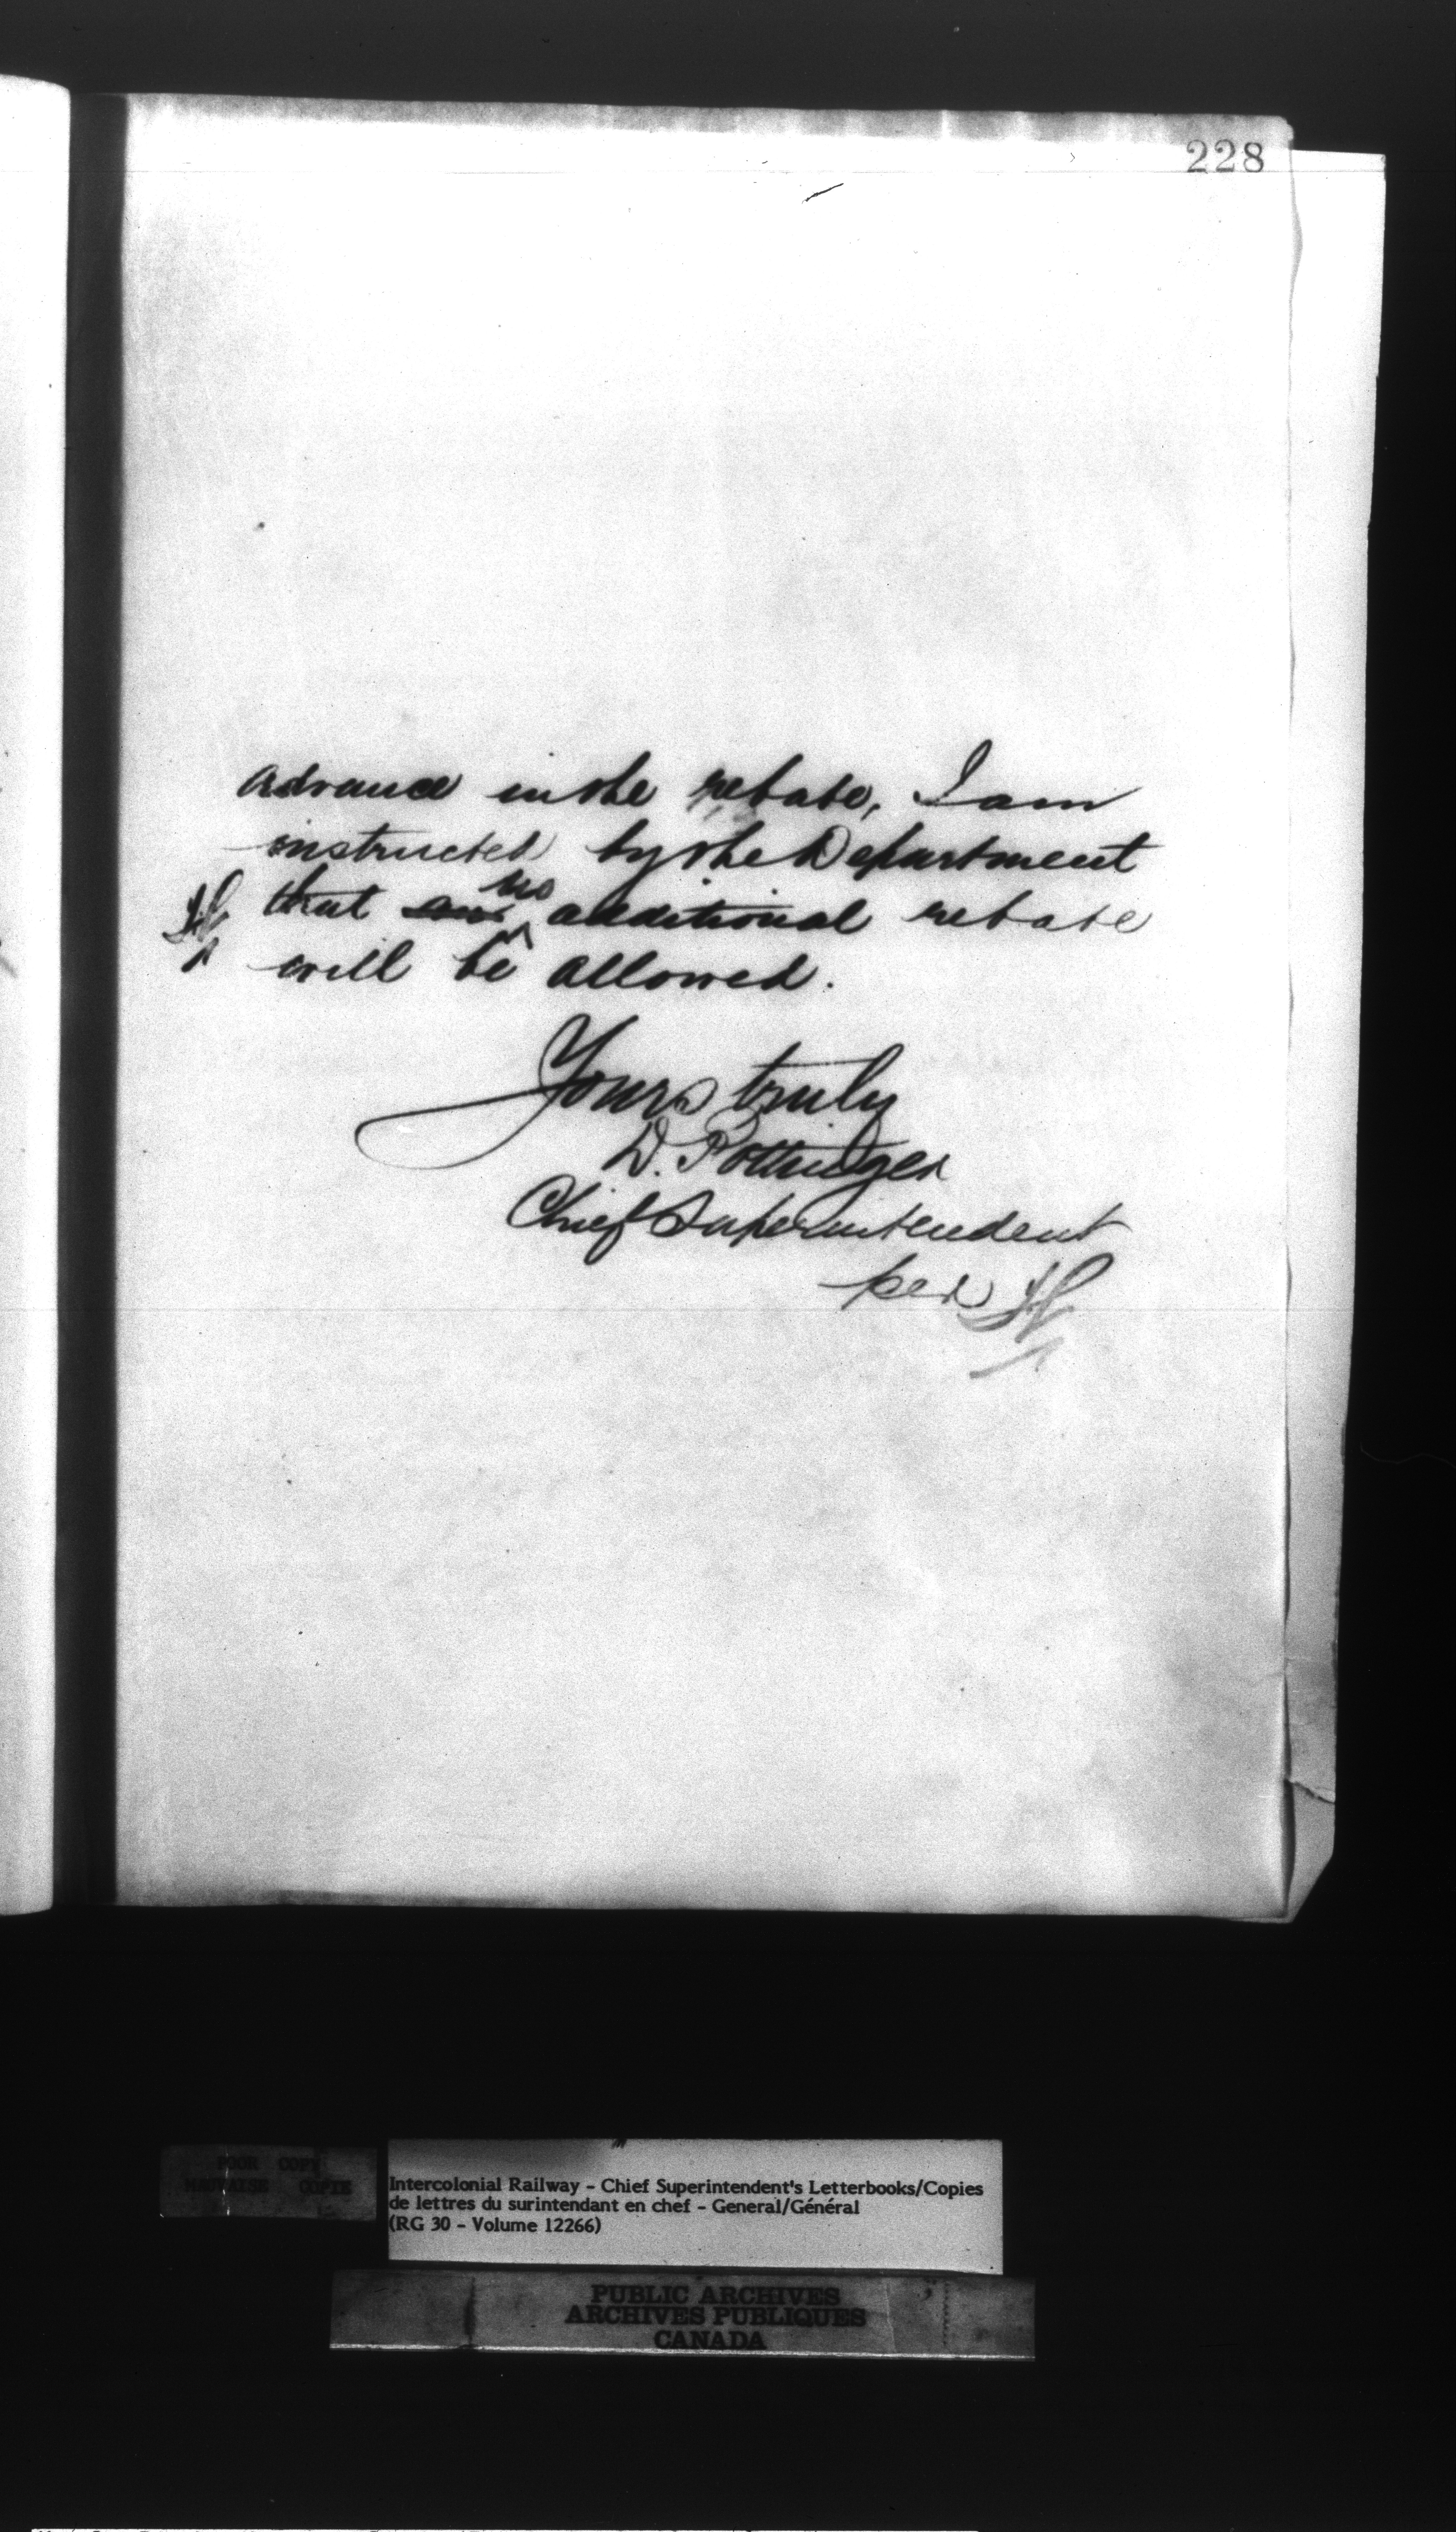 228
advance in the rebate, I am
instructed by the Department
no
that additional rebate
will be allowed.
Yours truly
D. Pottinger
Chief Superintendent
per
POOR COPY
MAUVAISE COPIE
Intercolonial Railway - Chief Superintendent's Letterbooks/Copies
de lettres du surintendant en chef - General/Général
(RG 30 - Volume 12266)
PUBLIC ARCHIVES
ARCHIVES PUBLIQUES
CANADA